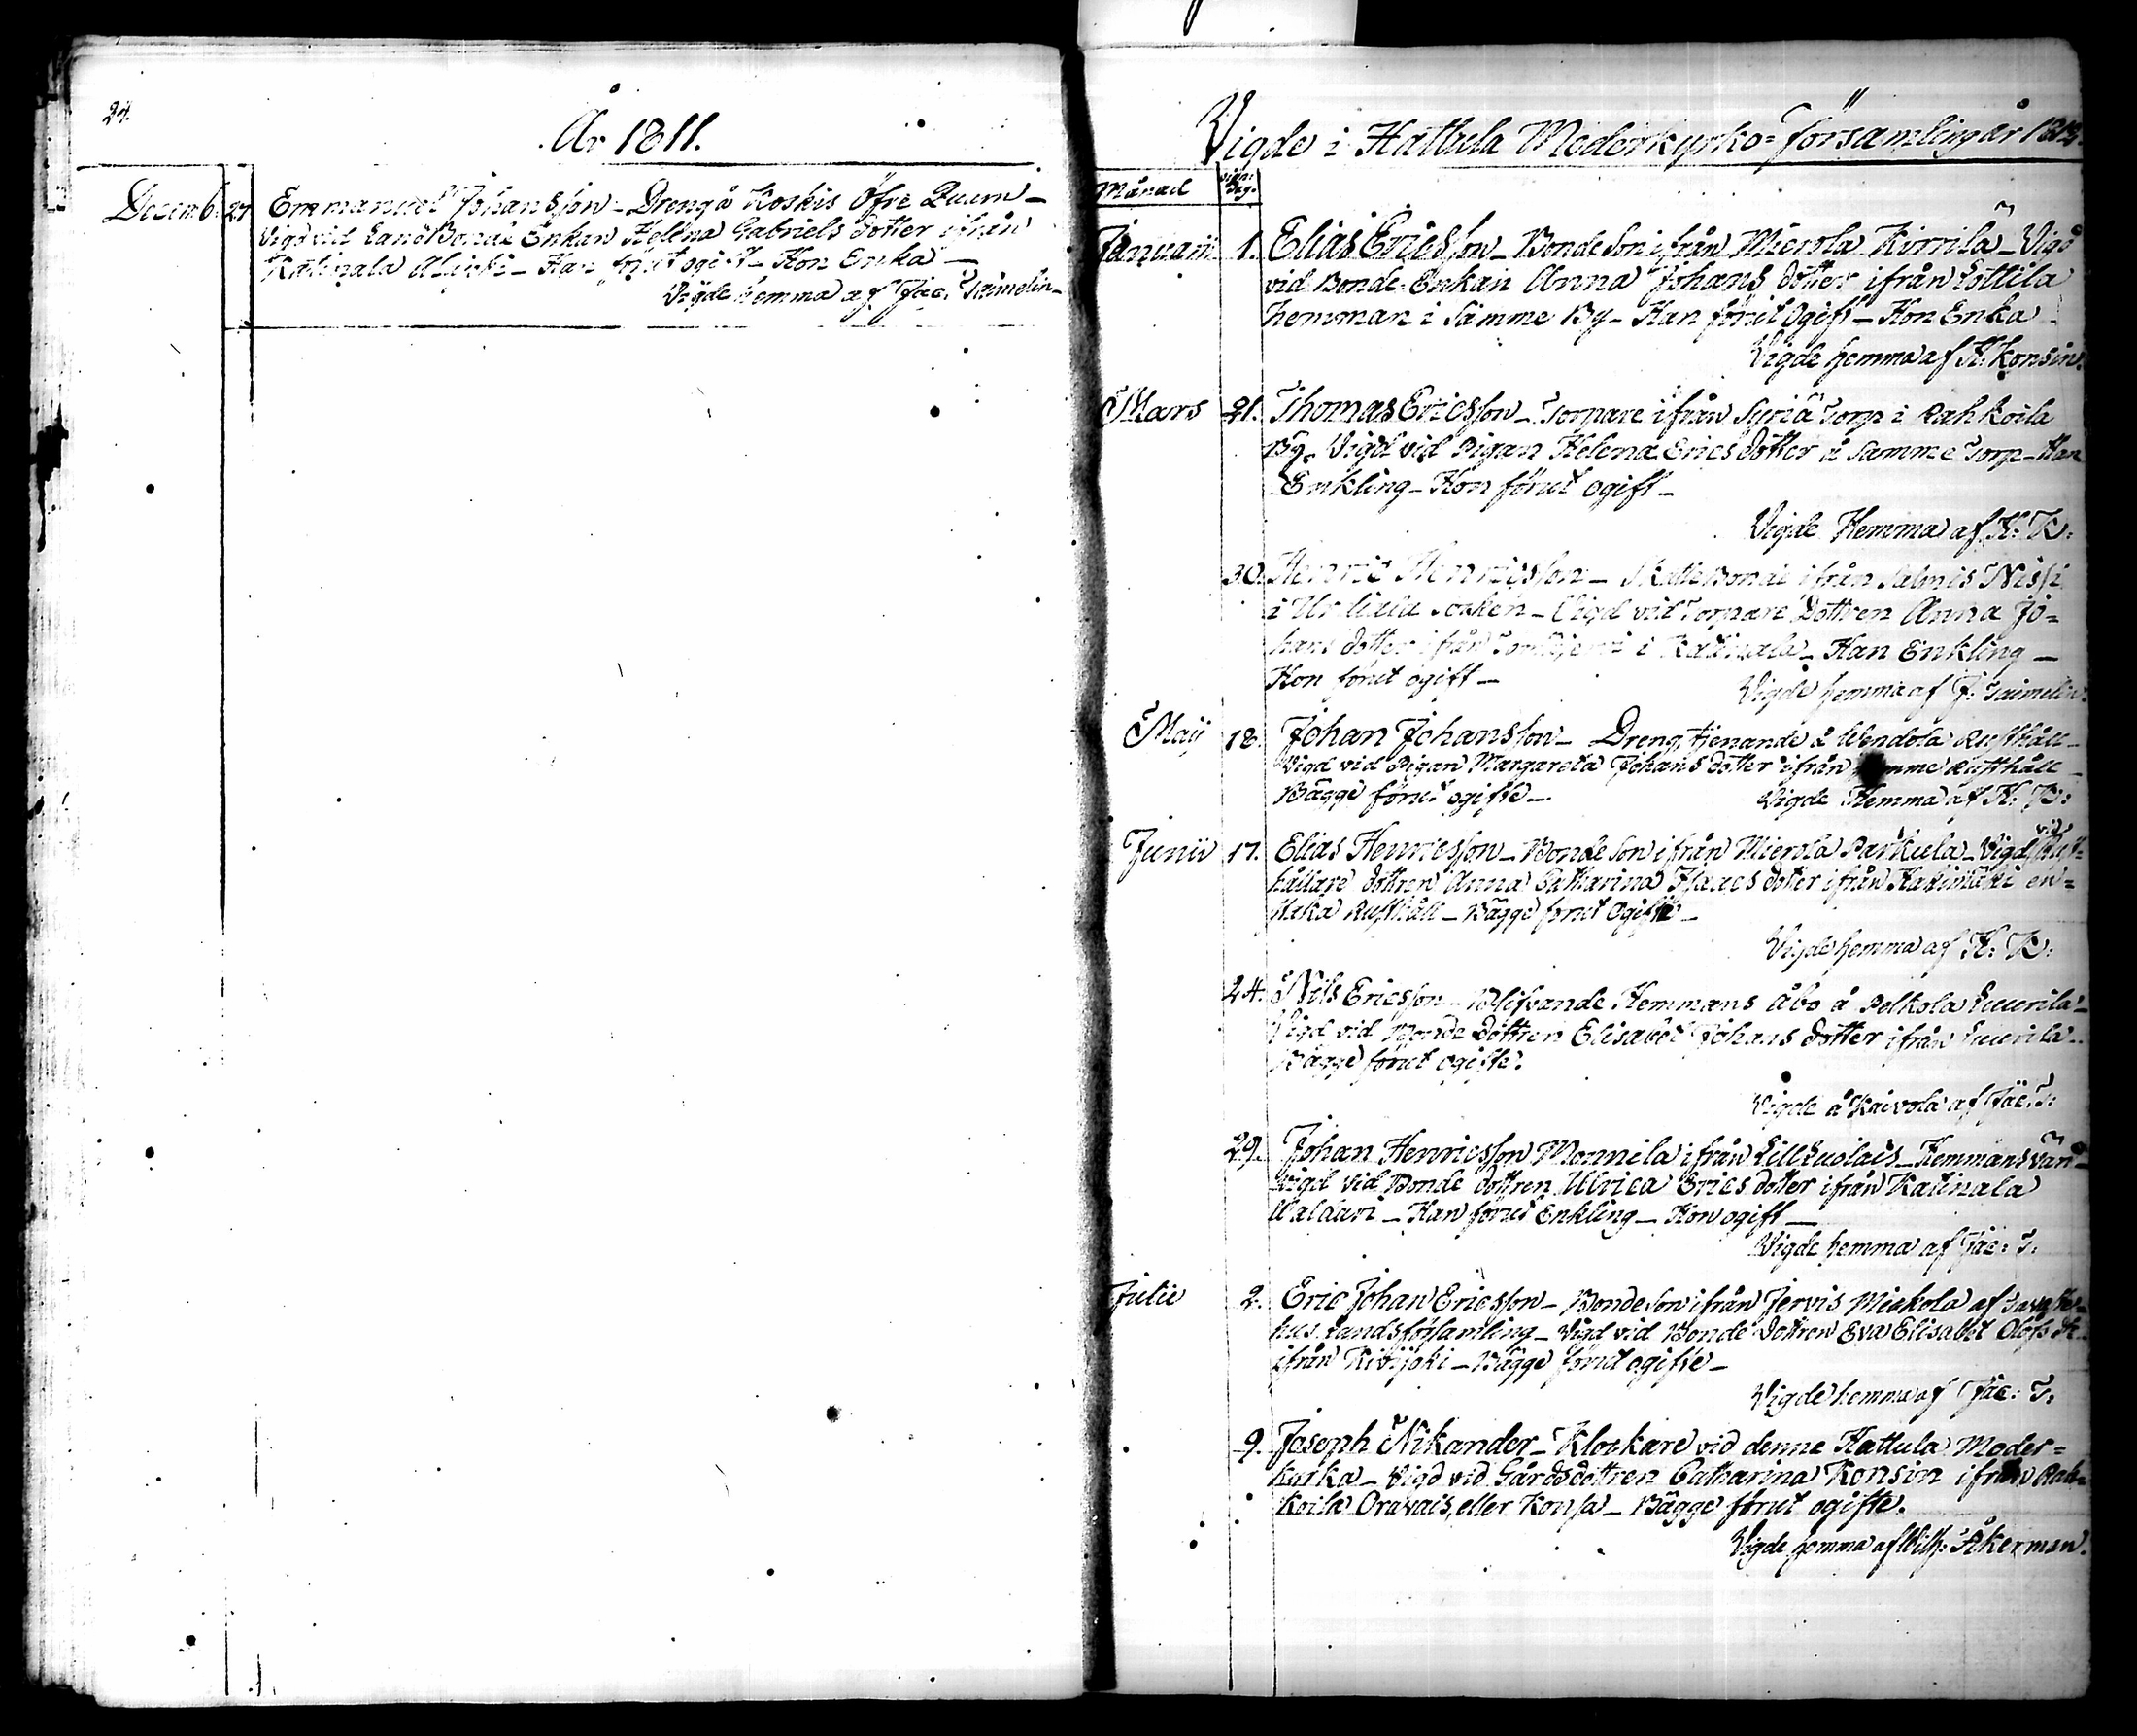 24.
År 1811.
Decemb. 27 Emmanuel Johansson - Dreng å Koskis Öfre Qvarn -
Vigd vid Landbonde Enkan Helena Gabriels dotter ifrån
Katinala Alijoki - Han förut ogift - Hon Enka -
Vigde hemma af Jac. Taimelin -
Vigde i Hattula Moderkyrko-församling år 1812.
Månad vign: dag.
Januarii 1. Elias Ericsson - Bonde Son ifrån Mierola Kirrila - Vigd
vid Bonde Enkan Anna Johans dotter ifrån Lottila
hemman i Samme By - Han förut Ogift - Hon Enka
Vigde hemma af H. Konsin.
Mars 21. Thomas Ericsson - Torpare ifrån Syriä Torp i Rahkoila
By. Vigd vid Pigan Helena Erics dotter å Samme Torp - Han
Enkling - Hon förut ogift -
Vigde Hemma af H. K.
30. Henric Henricsson - Skatte Bonde ifrån Salmis Nissi
i Urdiala Socken - Vigd vid Torpare Dottren Anna Jo=
hans dotter ifrån i Katinala - Han Enkling -
Hon förut ogift -
Vigde hemma af J. Taimelin.
Maij 18. Johan Johansson - Dreng, tjenande å Wendola Rusthåll -
Vigd vid Pigan Margareta Johans dotter ifrån samme Rusthåll -
Bägge förut ogifte -
Vigde Hemma af H. K:
Junii 17. Elias Henricsson - Bonde Son ifrån Mierola Parkula - Vigd vid Rust=
hållare dottren Anna Catharina Isaacs dotter ifrån en=
staka Rusthåll - Bägge förut Ogifte -
Vigde hemma af H: K:
24. Nils Ericsson - Blifvande Hemmans åbo å Pelkola Euurila -
Vigd vid Bonde dottren Elisabet Johans dotter ifrån Euurila -
Bägge förut ogifte.
Vigde å Kaivola af Jac. T:
29. Johan Henricsson Monnila ifrån Lill Luolais - Hemmans vän -
Vigd vid Bonde dottren Ulrica Erics dotter ifrån Katinala
Waldari - Han förut Enkling - Hon ogift -
Vigde hemma af Jac: T.
Julii 2. Eric Johan Ericsson - Bonde Son ifrån Jervis Miekola af Tavaste=
hus Landsförsamling - Vigd vid Bonde Dottren Eva Elisabet Olofs dr.
ifrån Kivijoki - Bägge förut ogifte -
Vigde hemma af Jac: T:
9. Joseph Nikander - Klockare vid denne Hattula Moder=
kyrka - Vigd vid Gårdsdottren Catharina Konsin ifrån Rah=
koila Oravais, eller Konsa - Bägge förut ogifte.
Vigde hemma af Wilh: Åkerman.